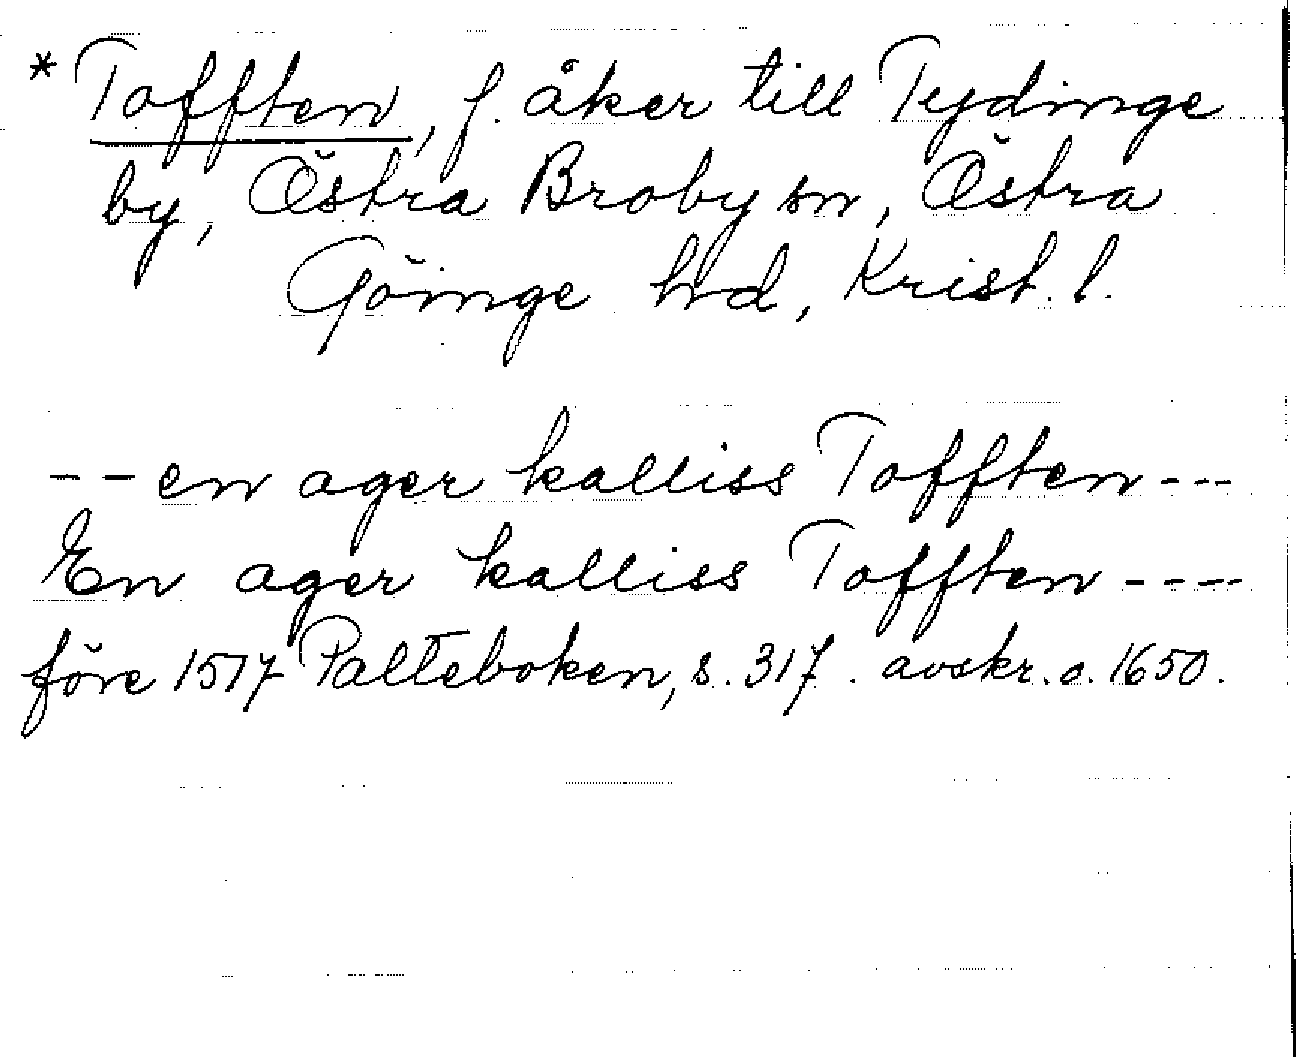 * Tofften, f. åker till Tydinge
by, Östra Broby sn, Östra
Göinge hd, Krist. l.
-- en ager kalliss Tofften ---
En ager kalliss Tofften ----
före 1517 Palteboken, s. 317. avskr. o. 1650.